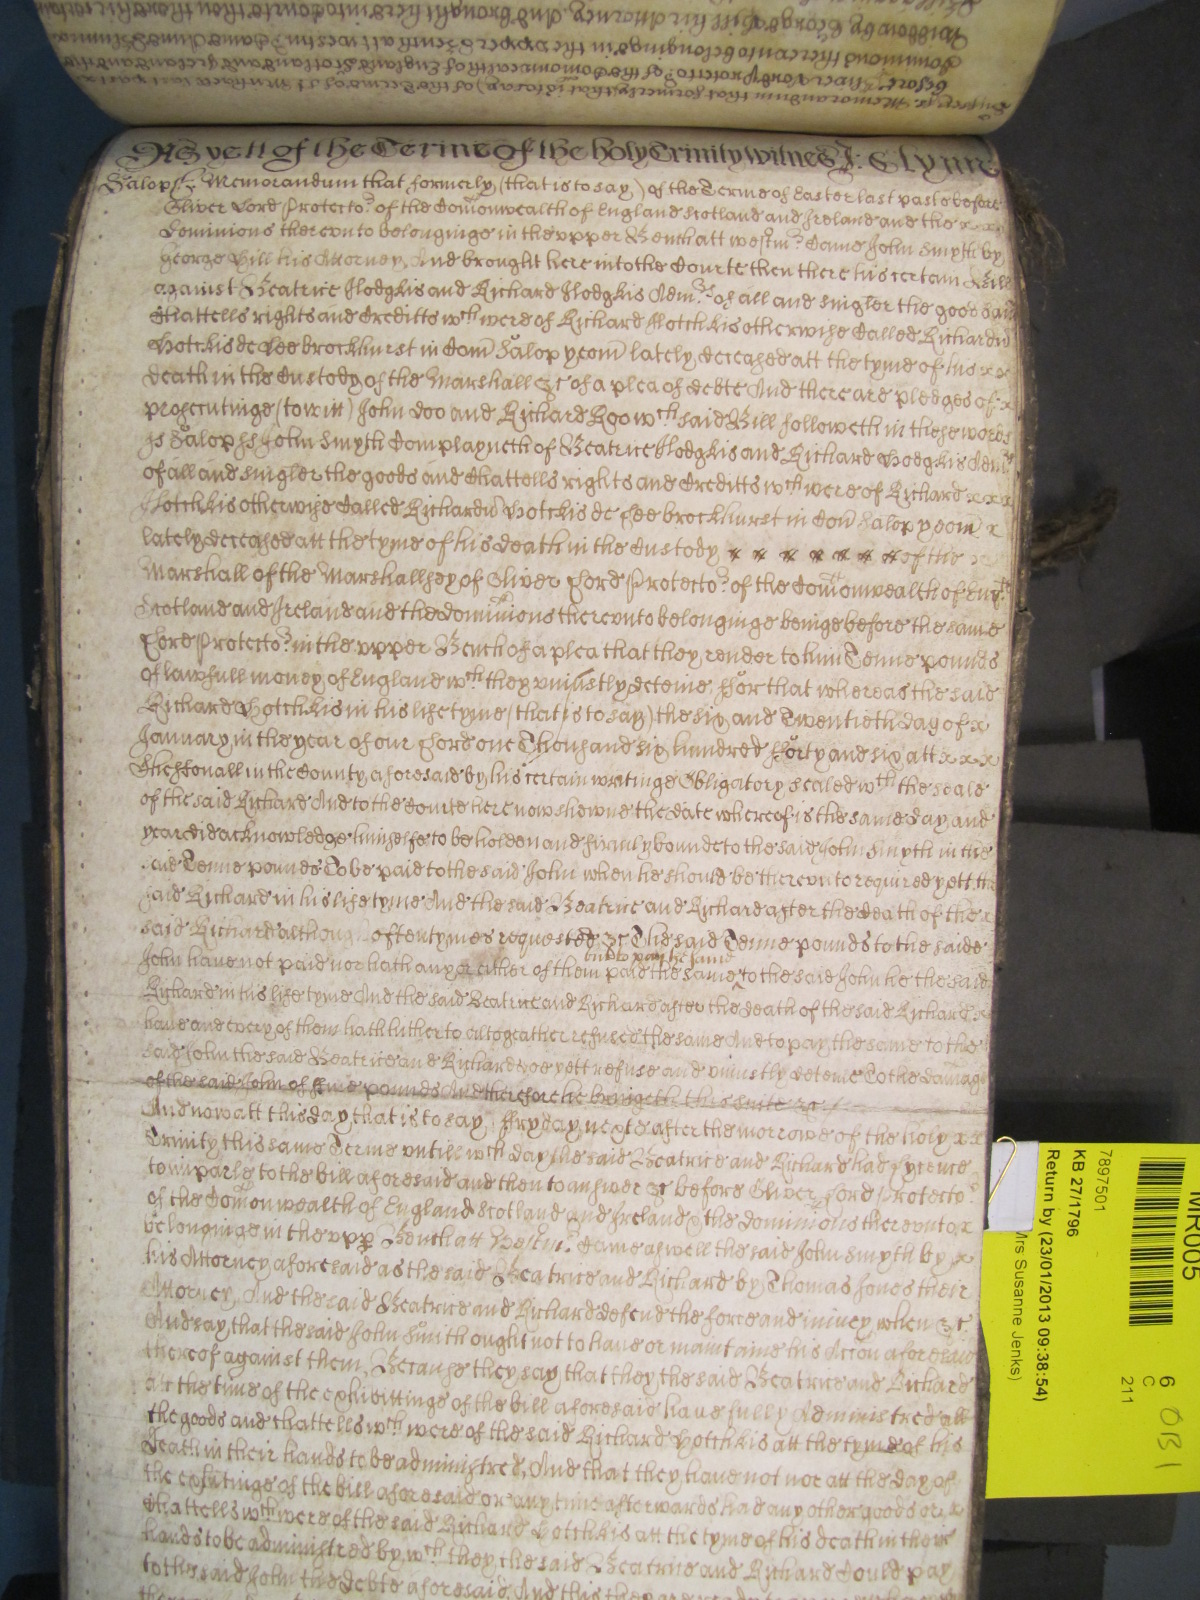 As yett of the Terme of the holy Trinity witnes J: Glynn
Salop ss Memorandum that formerly (that is to say) of the Terme of Easter last past before
Oliver Lord Protector of the Comonwealth of England Scotland and Ireland and the x x x
Dominions thereunto belonginge in the vpper Bench att westmr Came John Smyth by
George Hill his Attorney, And brought here into the Courte then there his certain Bill
against Beatrice Hodgkis and Richard Hodgkis Admrs of all and singler the goods and
Chattells rights and Creditts wch were of Richard Hotchkis otherwise Called Richardu
Hotchkis de Leebrockhurst in Com Salop yeom lately deceased att the tyme of his x x
death in the Custody of the Marshall &c of a plea of debte And there are pledges of x
prosecutinge (to witt) John Doo and Richard Roo wch said Bill followeth in these words
ss Salop ss John Smyth Complayneth of Beatrice Hodgkis and Richard Hodgkis Admrs
of all and singler the goods and Chattells rights and Creditts wch were of Richard x x x
Hotchkis otherwise Called Richardu Hotchkis de Leebrockhurst in Com Salop yeom x
lately deceased att the tyme of his death in the Custody x x x x x x x of the x
Marshall of the Marshallsey of Oliver Lord Protector of the Comonwealth of Engl
Scotland and Ireland and the dominions thereunto belonginge beinge before the same
Lord Protector in the vpper Bench of a plea that they render to him Tenne pounds
of lawfull money of England wch they vniustly deteine, ffor that whereas the said
Richard Hotchkis in his life tyme (that is to say) the six and Twentieth day of x
January in the year of our Lord one Thousand six hundred fforty and six att x x x
in the County aforesaid by his certain writinge Obligatory sealed wth the seale
of the said Richard And to the Courte here now shewne the date whereof is the same day and
year did acknowledge himselfe to be holden and firmly bounde to the said John Smyth in the
said Tenne pounds To be paid to the said John when he should be thereunto required yett the
said Richard in his life tyme And the said Beatrice and Richard after the death of the x
said Richard although oftentymes requested &c The said Tenne pounds to the saide
but to pay the same
John have not paid nor hath any or either of them paid the same to the said John he the said
Richard in his life tyme And the said Beatrice and Richard after the death of the said Richard x
have and every of them hath hither to altogeather refused the same And to pay the same to the
said John the said Beatrice and Richard doe yett refuse and vniustly deteine To the damage
of the said John of five pounds And therefore he bringeth this suite &c /
And now att this day, that is to say, ffryday next after the morrowe of the holy x x
Trinity this same Terme vntill wch day the said Beatrice and Richard had lycence
to imparle to the bill aforesaid and then to answer &c before Oliver Lord Protector
of the Comonwealth of England Scotland and Ireland & the dominions thereunto x
belonginge in the vpp Bench att Westmr Came aswell the said John Smyth by x
his Attorney aforesaid as the said Beatrice and Richard by Thomas Jones their
Attorney, And the said Beatrice and Richard defend the force and iniury when &c
And say, that the said John Smith ought not to have or maintaine his Accon aforesaid
thereof against them, Because they say that they the said Beatrice and Richard
att the time of the exhibittinge of the bill aforesaid have fully Administred all
the goods and chattells wch were of the said Richard Hotchkis att the tyme of his
Death in their hands to be administred, And that they have not nor att the day of
the exhitinge of the bill aforesaid or any time afterwards had any other goods or x
Chattells wch were of the said Richard Hotchkis att the tyme of his death in their
hands to be administred by wch they the said Beatrice and Richard Could pay
to the said John the debte aforesaid, And this they are ready to
MR005
7897501
KB 27/1796
Return by (23/01/2013 09:38:54)
Mrs Susanne Jenks)
6
C
211